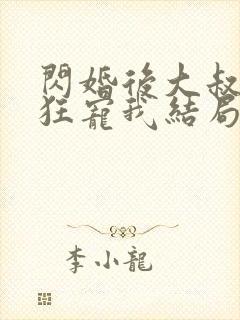 閃婚後大叔
狂寵我結局
李小龍